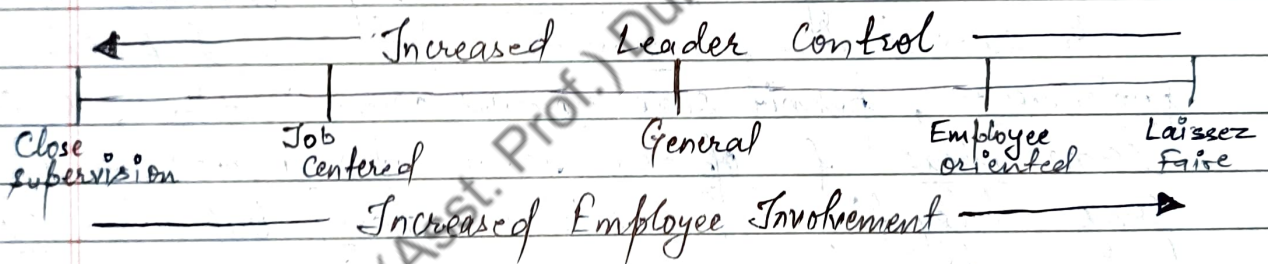 Increased Leader Control
Close supervision
Job Centered
General
Employee oriented
Laissez faire
Increased Employee Involvement
(Asst. Prof.)